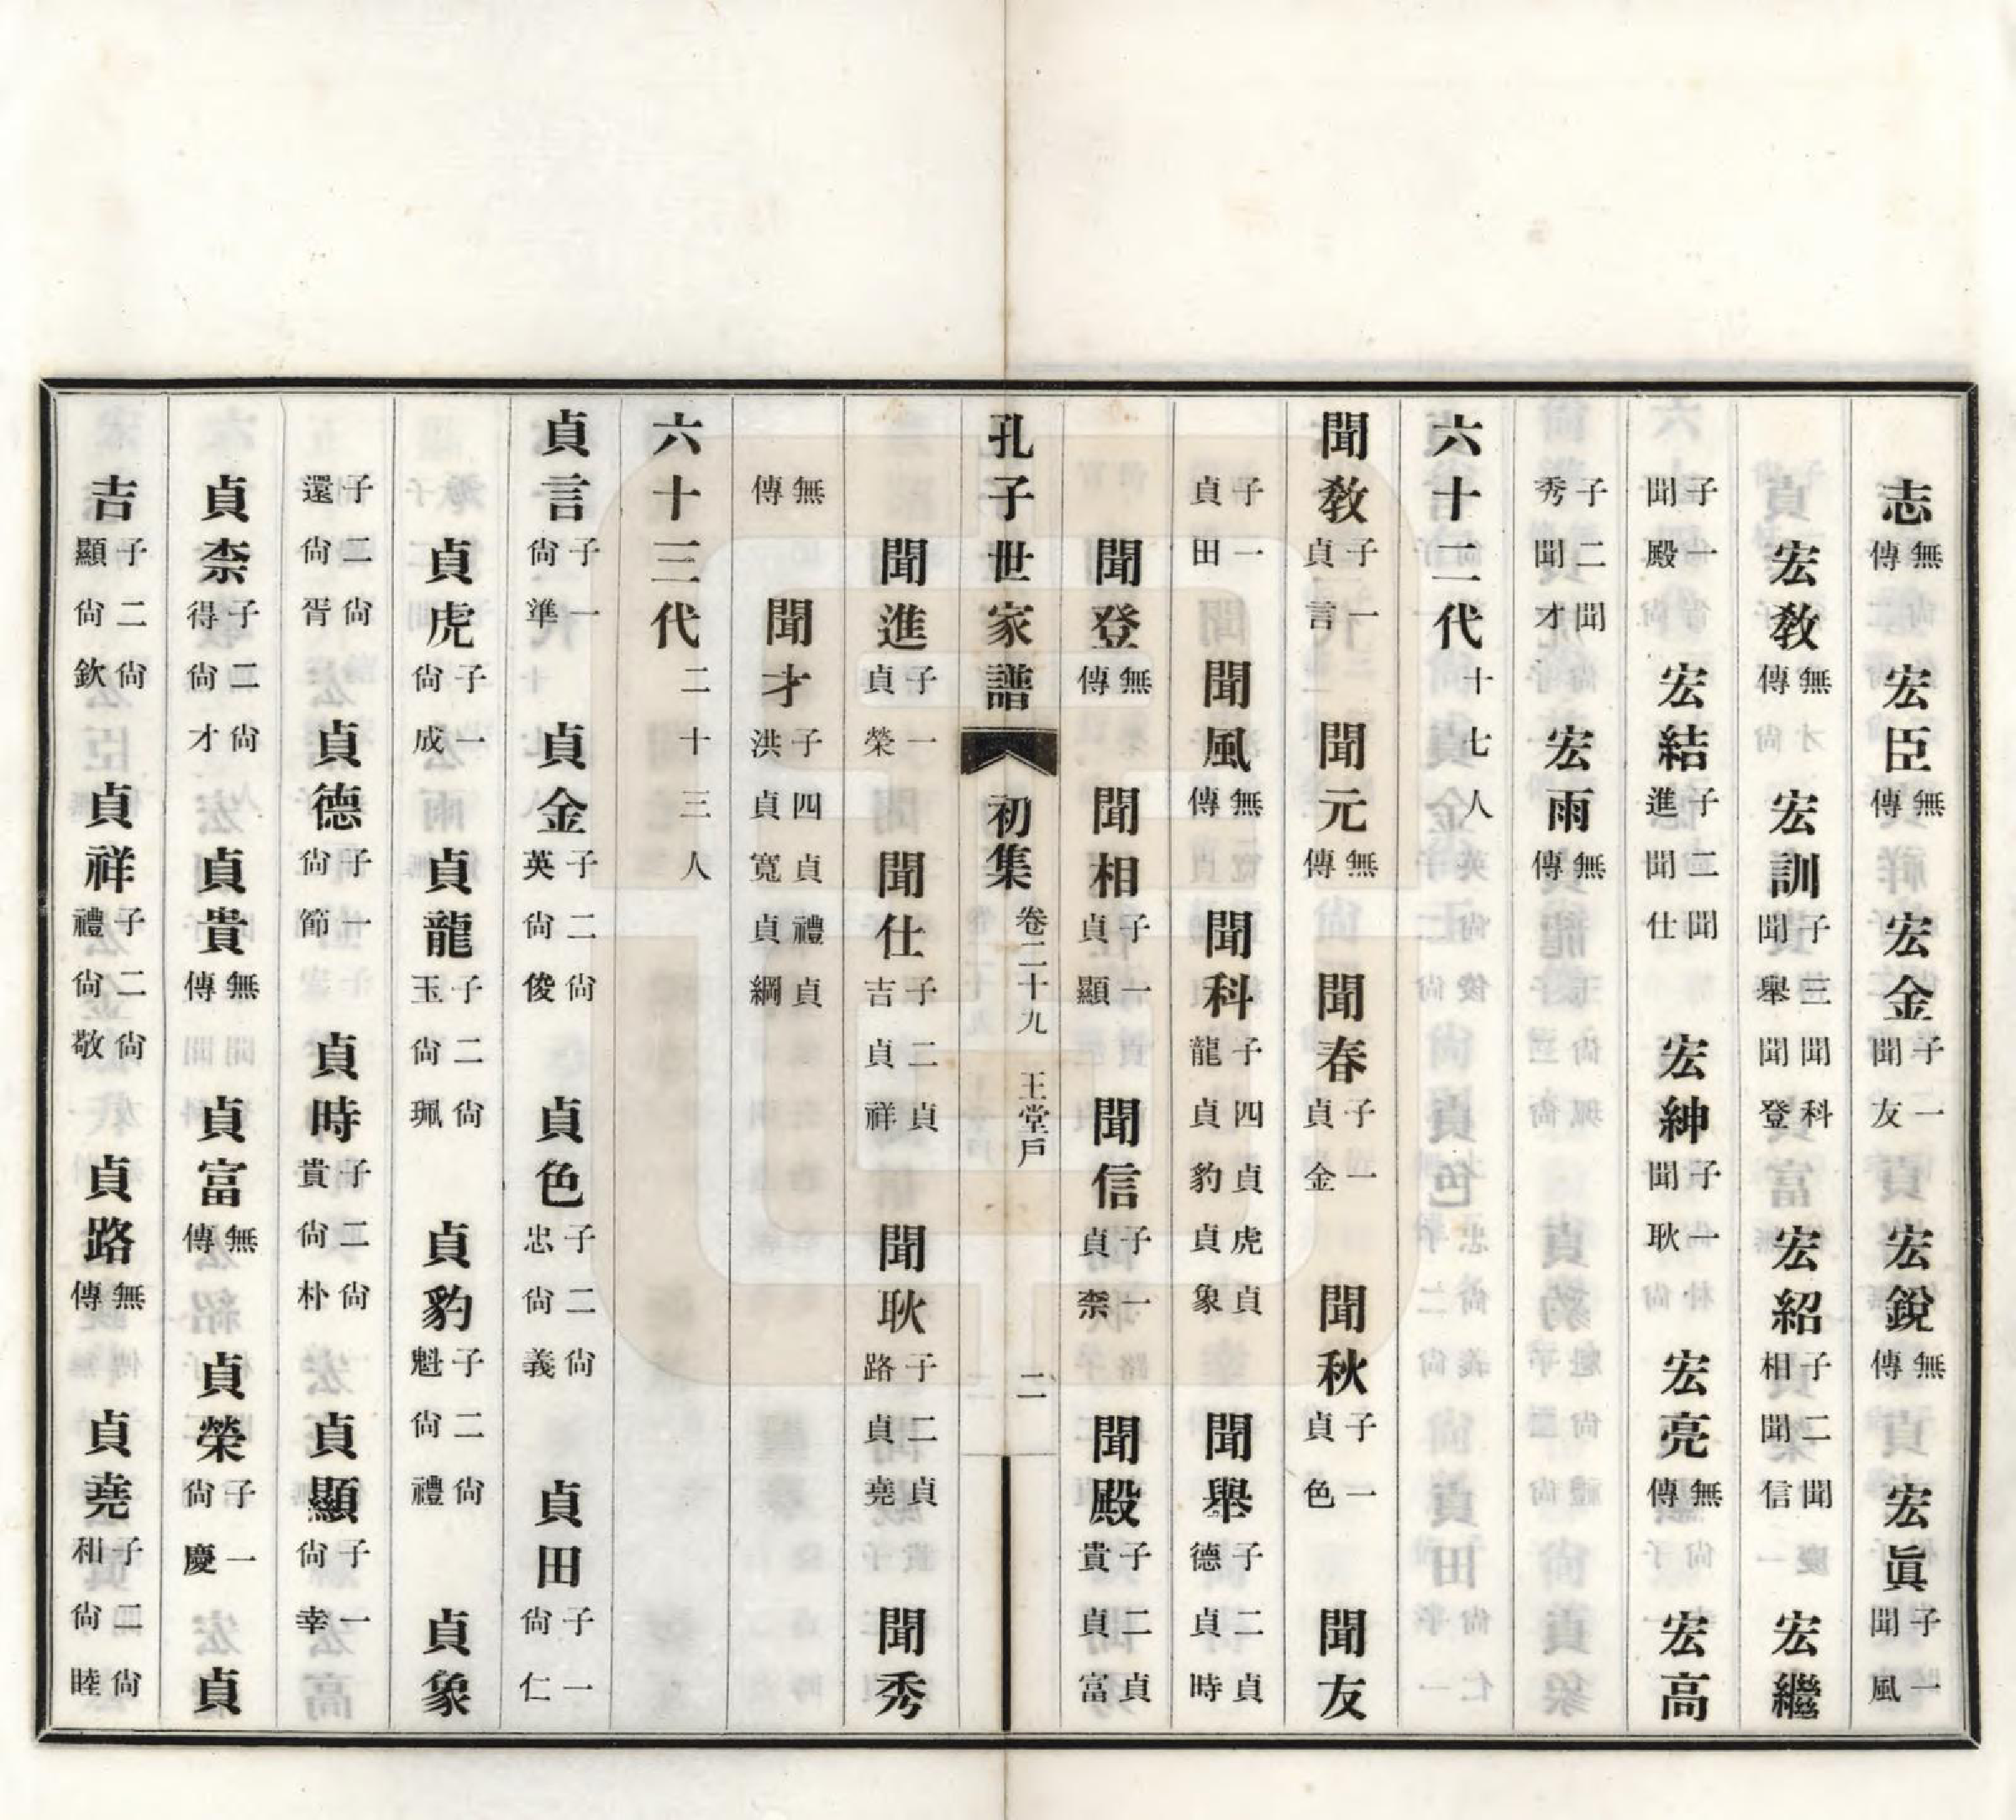 志無傳 宏臣無傳 宏金子一聞友 宏銳無傳 宏眞子一聞風
宏教無傳 宏訓子三聞科聞舉聞登 宏紹子二聞相聞信 宏繼
子一聞殿 宏結子二聞進聞仕 宏紳子一聞耿 宏亮無傳 宏高
子二聞秀聞才 宏雨無傳
六十二代十七人
聞教子一貞言 聞元無傳 聞春子一貞金 聞秋子一貞色 聞友
子一貞田 聞風無傳 聞科子四貞龍貞虎貞豹貞象 聞舉子二貞德貞時
聞登無傳 聞相子一貞顯 聞信子一貞柰 聞殿子二貞貴貞富
孔子世家譜 初集 卷二十九 王堂戶 二
聞進子一貞榮 聞仕子二貞吉貞祥 聞耿子二貞路貞堯 聞秀
無傳 聞才子四貞洪貞禮貞寬貞綱
六十三代二十三人
貞言子一尙準 貞金子二尙英尙俊 貞色子二尙忠尙義 貞田子一尙仁
貞虎子一尙成 貞龍子二尙玉尙珮 貞豹子二尙魁尙禮 貞象
子二尙還尙胥 貞德子一尙節 貞時子二尙貴尙朴 貞顯子一尙幸
貞柰子二尙得尙才 貞貴無傳 貞富無傳 貞榮子一尙慶 貞
吉子二尙顯尙欽 貞祥子二尙禮尙敬 貞路無傳 貞堯子二尙和尙睦